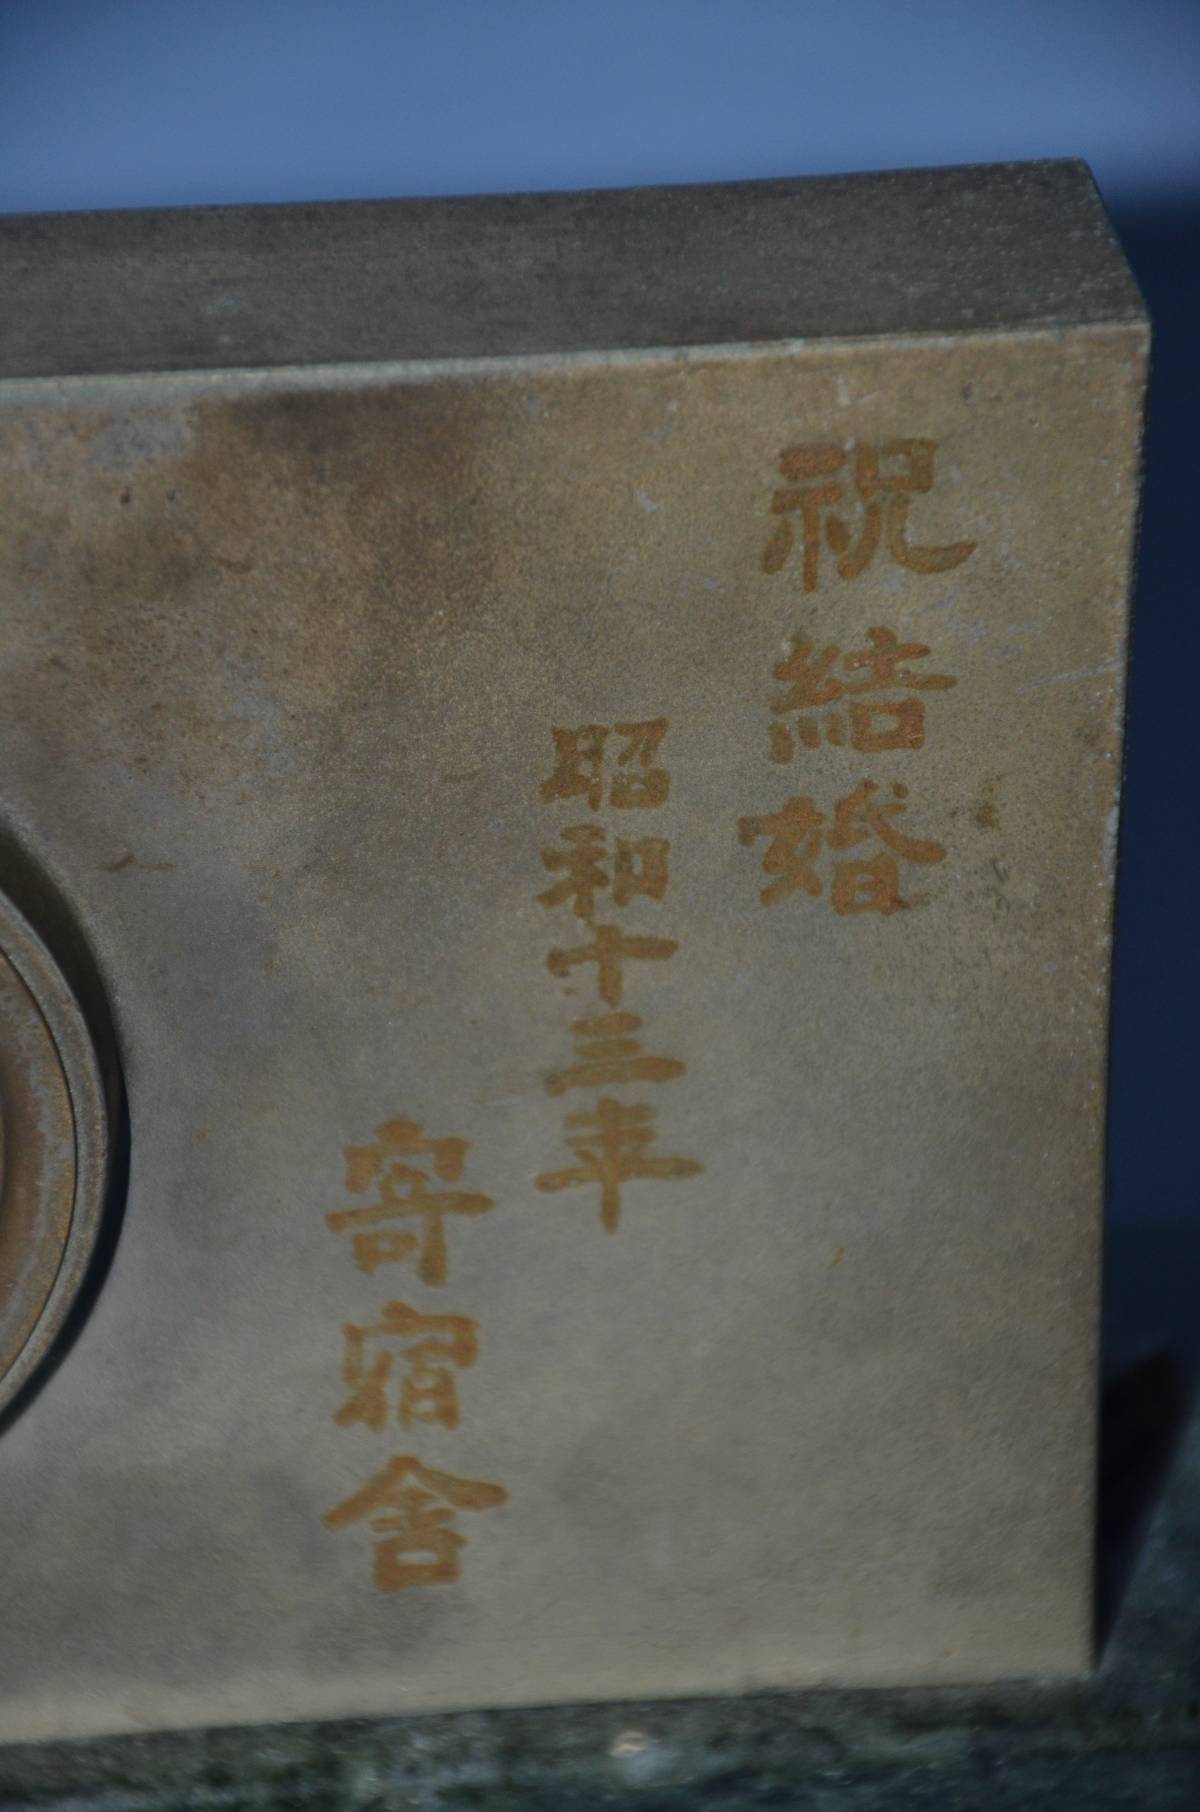 祝結婚
昭和十三年
寄宿舍